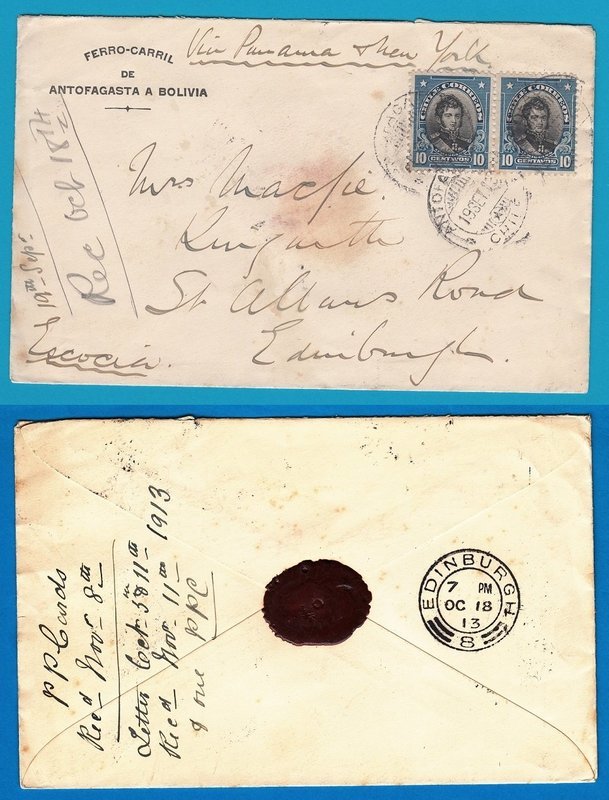 FERRO-CARRIL
DE
ANTOFAGASTA A BOLIVIA
Via Panama & New York
CHILE CORREOS
10 CENTAVOS 10
CHILE CORREOS
10 CENTAVOS 10
ANTOFAG
19 SET
CHILE
Mrs Macfie.
St Albans Road
Edinburgh.
Escocia.
19th Sepr
Rec Oct 18th
PP Cards
Recd Novr 8th
Letter Octr 5th & 11th
Recd Novr 11th 1913
& one PPC
EDINBURGH
7 PM
OC 18
13
8